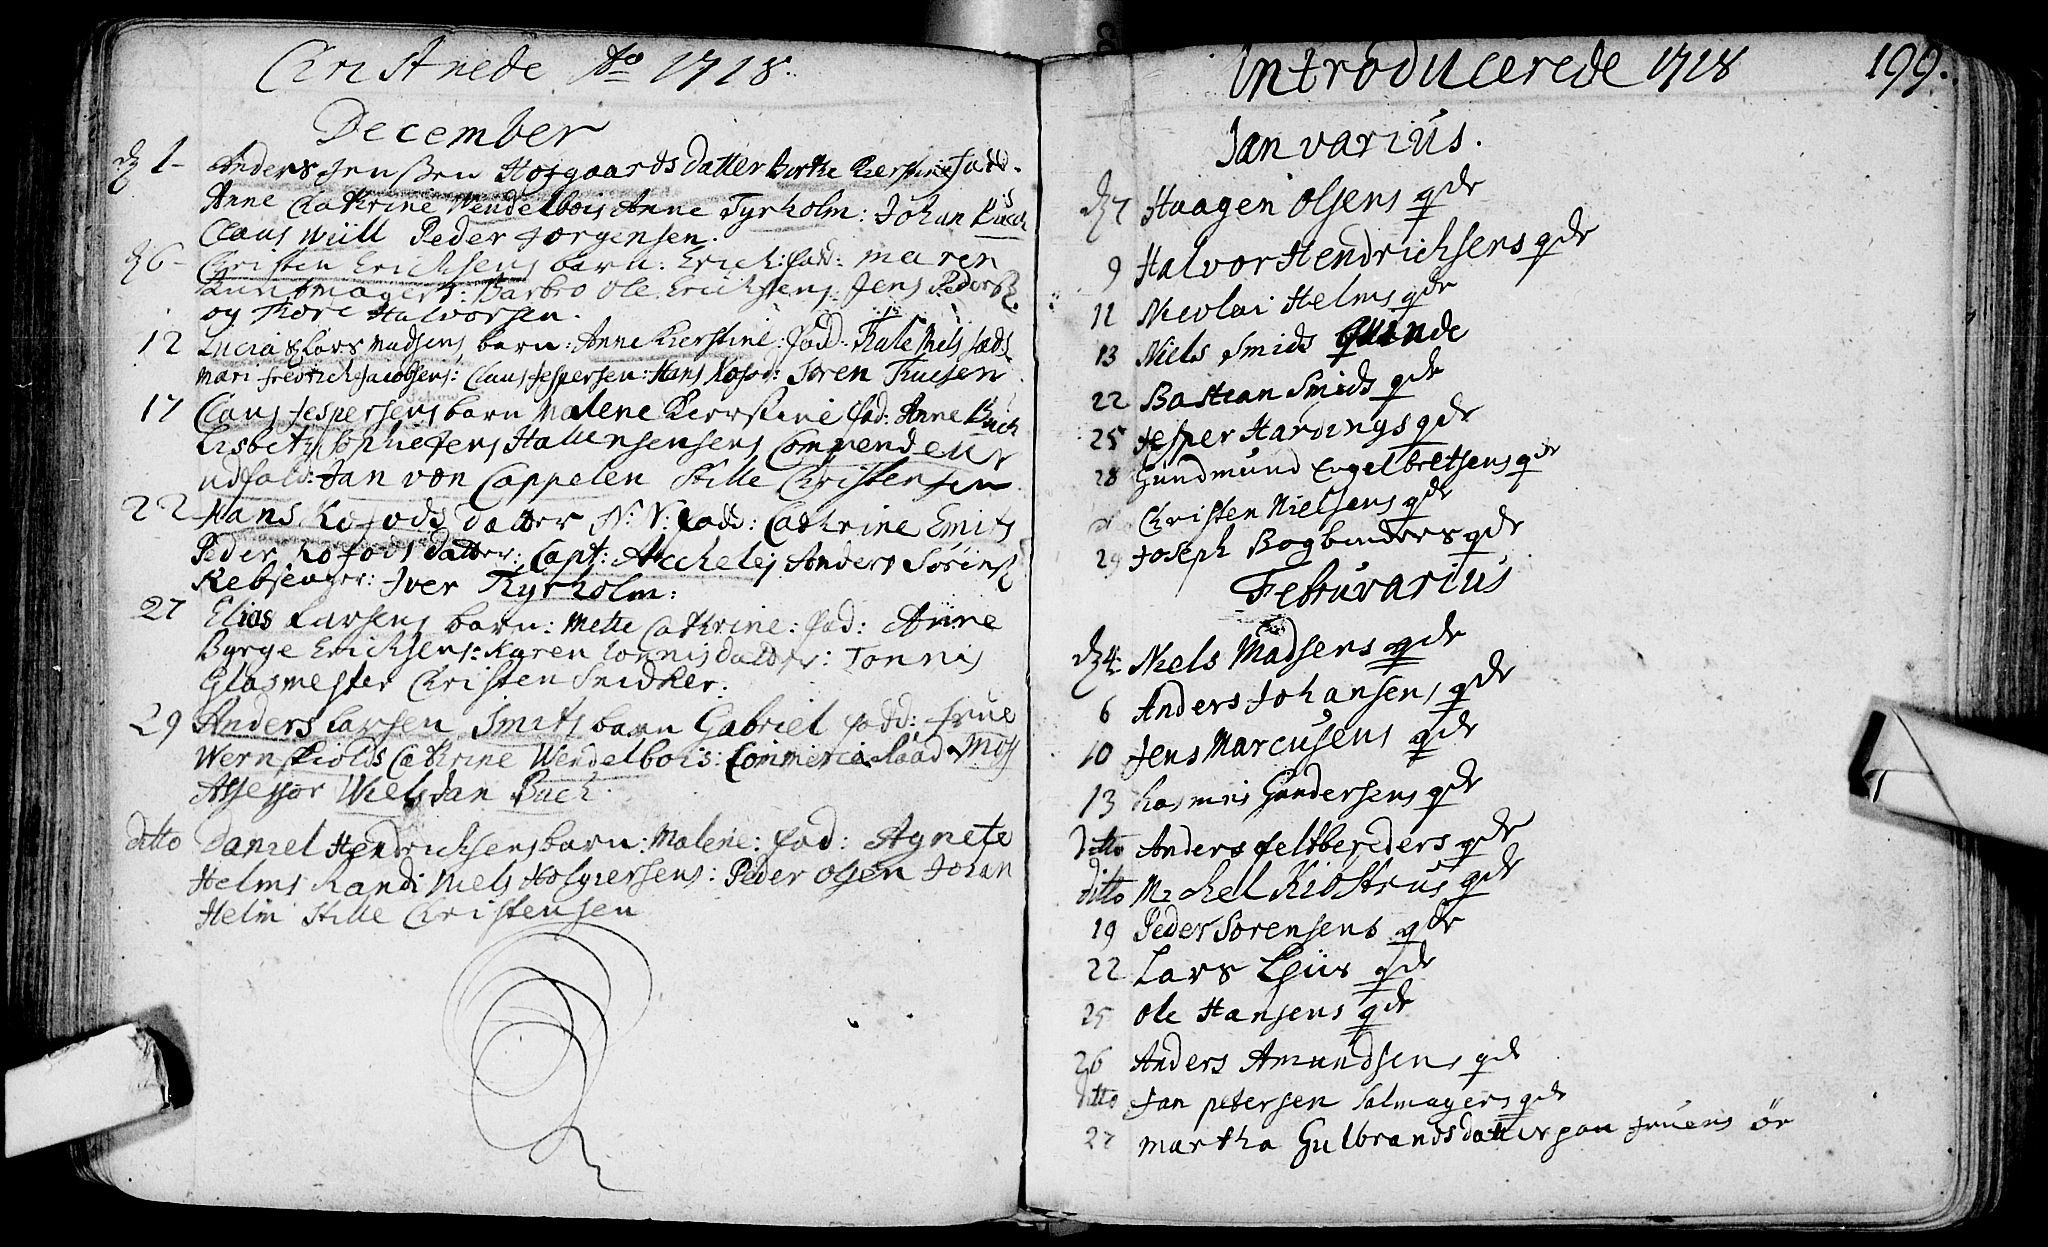 Christnede Ao 1718.
December
d 1- Anders Jenssen Hofgaards datter Birthe Kierstine fadd.
Anne Cathrine Wendelbois Anne Tyrholm: Johan Buch
Claus Wiill Peder Jørgensen.
d 6- Christen Erichsens barn: Erich: fad: maren
Bundtmagers: Barbro Ole Erichsens: Jens Peders
og Tore Halvorsen.
12 Lucia Lars Madsens barn: Anne Kierstine: fad:
Mari fredrich Jacobsens: Claus Jespersen: Hans Kofod: Søren Truesen
17 Claus Jespersens barn Malene Kierstine fad: Anne Buch
Lisbeth Sophie Jens Commendeur
Jan von Cappelen Stille Christensen
22 Hans Kofods datter N: N: fadd: Cathrine Smits
Peder Kofods datter: Capt: Anders Sørens
Rebslager: Iver Tyrholm:
27 Elias Larsens barn: Mette Cathrine: fad: Anne
Byrge Erichsens: Karen Tønnis datter: Tønnis
Glasmester Christen Snidker:
29 Anders Larsen Smits barn Gabriel fadd: frue
Wernskiolds Cathrine Wendelbois: Commercie Raad
Assessor Wiel Jan Buch.
ditto Daniel Hendrichsens barn: Malene: fad: Agnete
Helms Randi Niels Holgiersens: Peder Olsen Johan
Helm Stille Christensen
Introducerede 1718 199.
Janvarius.
d 7 Haagen Olsens qde
9 Halvor Hendrichsens qde
11 Nicolai Helms qde
13 Niels Smids quinde
22 Bastian Smids qde
25 Jesper Hardings qde
28 Gundmund Engelbretsens qde
Christen Nielsens qde
29 Joseph Bogbinders qde
Februvarius
d 4: Niels Madsens qde
6 Anders Johansens qde
10 Jens Marcusens qde
13 Rasmus Gundersens qde
ditto Anders feltbereders qde
ditto Michel qde
19 Peder Sørensens qde
22 Lars qde
25 Ole Hansens qde
26 Anders Amundsens qde
ditto Jan petersen Salmagers qde
27 Martha Gulbrandsdatter paa fruens ör